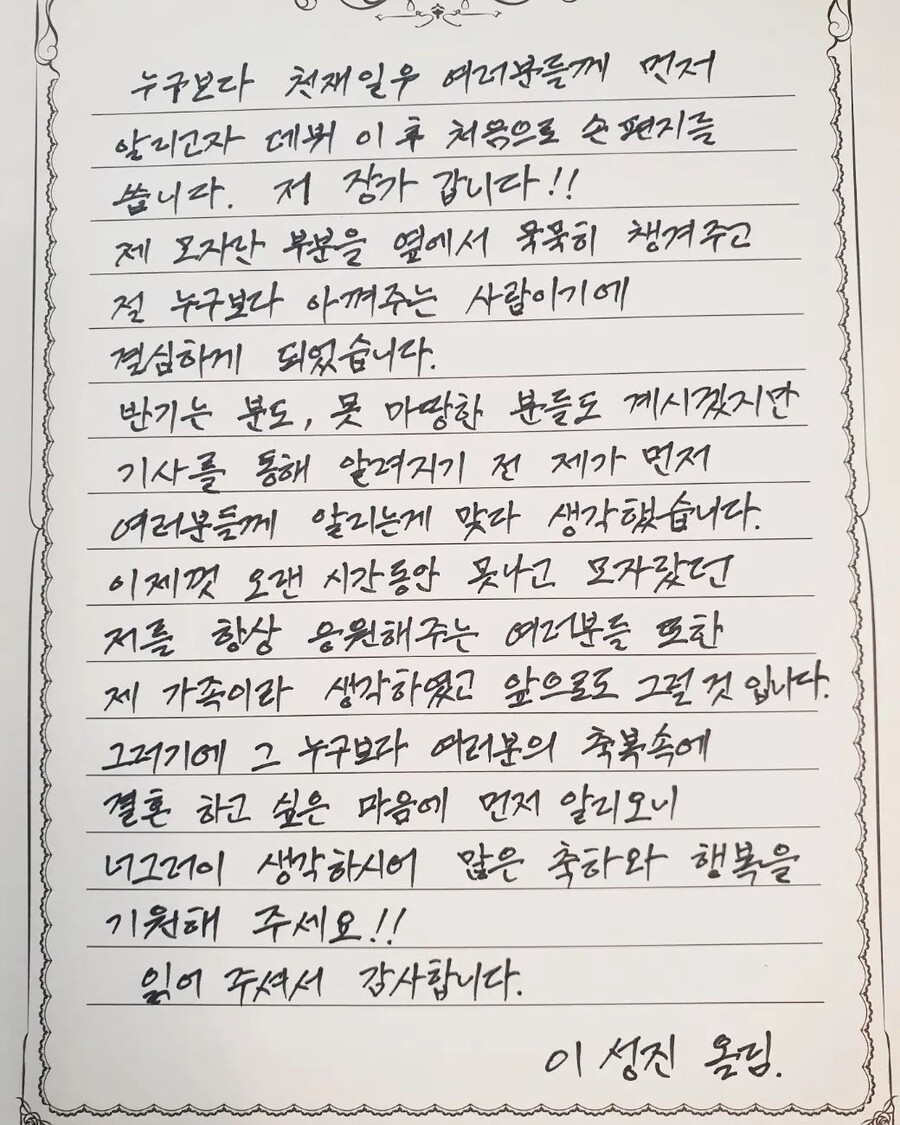 누구보다 천재일우 여러분들께 먼저
알리고자 데뷔 이후 처음으로 손편지를
씁니다. 저 장가 갑니다!!
제 모자란 부분을 옆에서 묵묵히 챙겨주고
절 누구보다 아껴주는 사람이기에
결심하게 되었습니다.
반기는 분도, 못 마땅한 분들도 계시겠지만
기사를 통해 알려지기 전 제가 먼저
여러분들께 알리는게 맞다 생각했습니다.
이제껏 오랜 시간동안 못나고 모자랐던
저를 항상 응원해주는 여러분들 또한
제 가족이라 생각하였고 앞으로도 그럴 것 입니다.
그러기에 그 누구보다 여러분의 축복속에
결혼 하고 싶은 마음에 먼저 알리오니
너그러이 생각하시어 많은 축하와 행복을
기원해 주세요!!
읽어 주셔서 감사합니다.
이성진 올림.